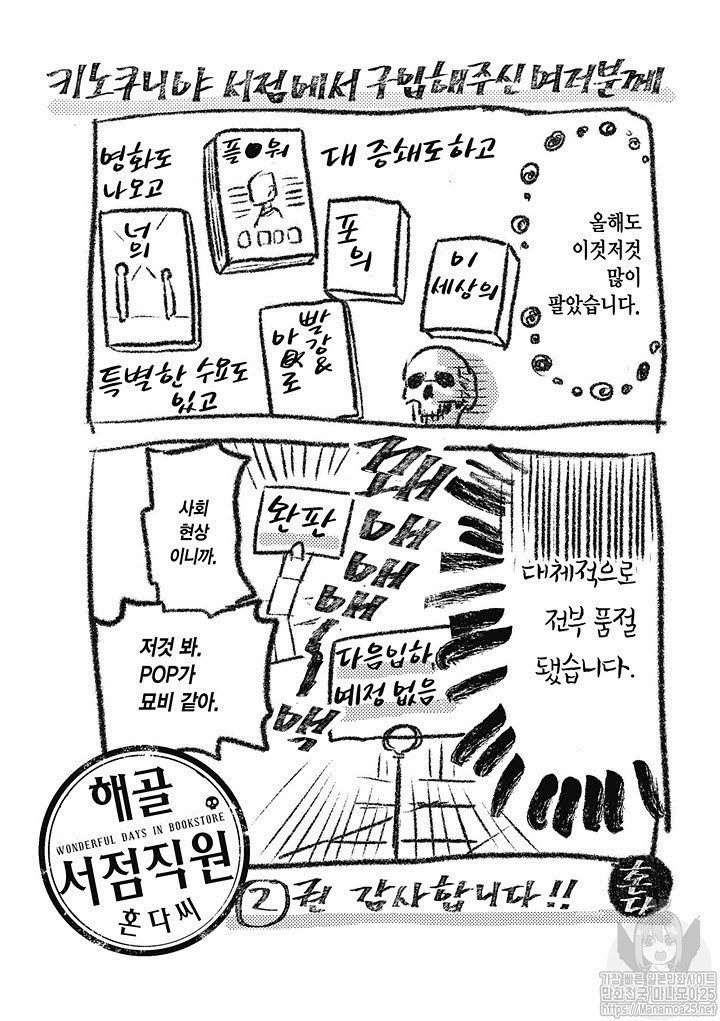 키노쿠니야 서점에서 구입해주신 여러분께
올해도
이것저것
많이
팔았습니다.
대 증쇄도 하고
영화도
나오고
플●워
너의
포의
이
세상의
빨강&
특별한 수요도
있고
대체적으로
전부 품절
됐습니다.
완판
다음입하,
예정 없음
사회
현상
이니까.
저것 봐.
POP가
묘비 같아.
해골
WONDERFUL DAYS IN BOOKSTORE
서점직원
혼다씨
②권 감사합니다!!
혼다
가장 빠른 일본만화사이트
만화천국 마나모아25
https://Manamoa25.net